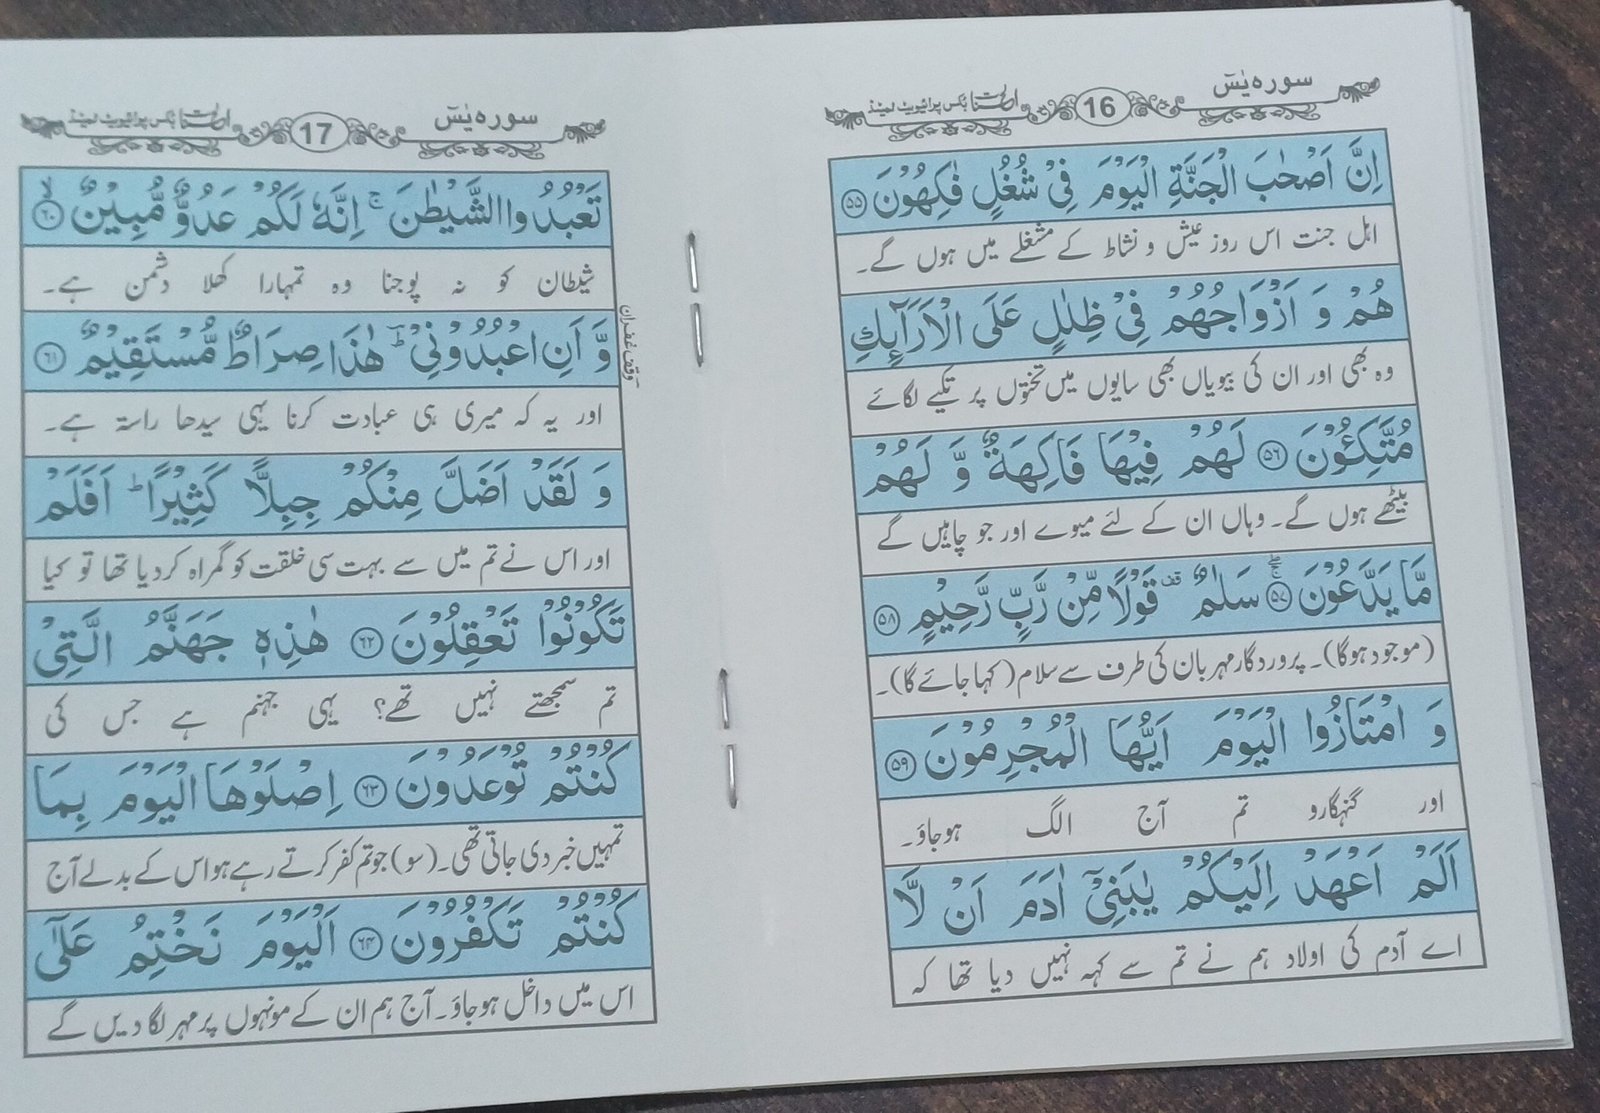 سورہ یٰسٓ
16
بکس پرائیویٹ لمیٹڈ
اِنَّ اَصْحٰبَ الْجَنَّةِ الْيَوْمَ فِيْ شُغُلٍ فٰكِهُوْنَ ۝۵۵
اہل جنت اس روز عیش و نشاط کے مشغلے میں ہوں گے۔
هُمْ وَ اَزْوَاجُهُمْ فِيْ ظِلٰلٍ عَلَى الْاَرَآىِٕكِ
وہ بھی اور ان کی بیویاں بھی سایوں میں تختوں پر تکیے لگائے
مُتَّكِـُٔوْنَ ۝۵۶ لَهُمْ فِيْهَا فَاكِهَةٌ وَّ لَهُمْ
بیٹھے ہوں گے۔ وہاں ان کے لئے میوے اور جو چاہیں گے
مَّا يَدَّعُوْنَ ۝۵۷ۚۖ سَلٰمٌ قف قَوْلًا مِّنْ رَّبٍّ رَّحِيْمٍ ۝۵۸
(موجود ہوگا)۔ پروردگار مہربان کی طرف سے سلام (کہا جائے گا)۔
وَ امْتَازُوا الْيَوْمَ اَيُّهَا الْمُجْرِمُوْنَ ۝۵۹
اور گنہگارو تم آج الگ ہوجاؤ۔
اَلَمْ اَعْهَدْ اِلَيْكُمْ يٰبَنِيْٓ اٰدَمَ اَنْ لَّا
اے آدم کی اولاد ہم نے تم سے کہہ نہیں دیا تھا کہ
سورہ یٰسٓ
17
بکس پرائیویٹ لمیٹڈ
تَعْبُدُوا الشَّيْطٰنَ ۚ اِنَّهٗ لَكُمْ عَدُوٌّ مُّبِيْنٌ ۝۶۰ۙ
شیطان کو نہ پوجنا وہ تمہارا کھلا دشمن ہے۔
وَّ اَنِ اعْبُدُوْنِيْ ؕ هٰذَا صِرَاطٌ مُّسْتَقِيْمٌ ۝۶۱
وقف غفران
اور یہ کہ میری ہی عبادت کرنا یہی سیدھا راستہ ہے۔
وَ لَقَدْ اَضَلَّ مِنْكُمْ جِبِلًّا كَثِيْرًا ؕ اَفَلَمْ
اور اس نے تم میں سے بہت سی خلقت کو گمراہ کردیا تھا تو کیا
تَكُوْنُوْا تَعْقِلُوْنَ ۝۶۲ هٰذِهٖ جَهَنَّمُ الَّتِيْ
تم سمجھتے نہیں تھے؟ یہی جہنم ہے جس کی
كُنْتُمْ تُوْعَدُوْنَ ۝۶۳ اِصْلَوْهَا الْيَوْمَ بِمَا
تمہیں خبر دی جاتی تھی۔ (سو) جو تم کفر کرتے رہے ہو اس کے بدلے آج
كُنْتُمْ تَكْفُرُوْنَ ۝۶۴ اَلْيَوْمَ نَخْتِمُ عَلٰٓى
اس میں داخل ہوجاؤ۔ آج ہم ان کے مونہوں پر مہر لگا دیں گے